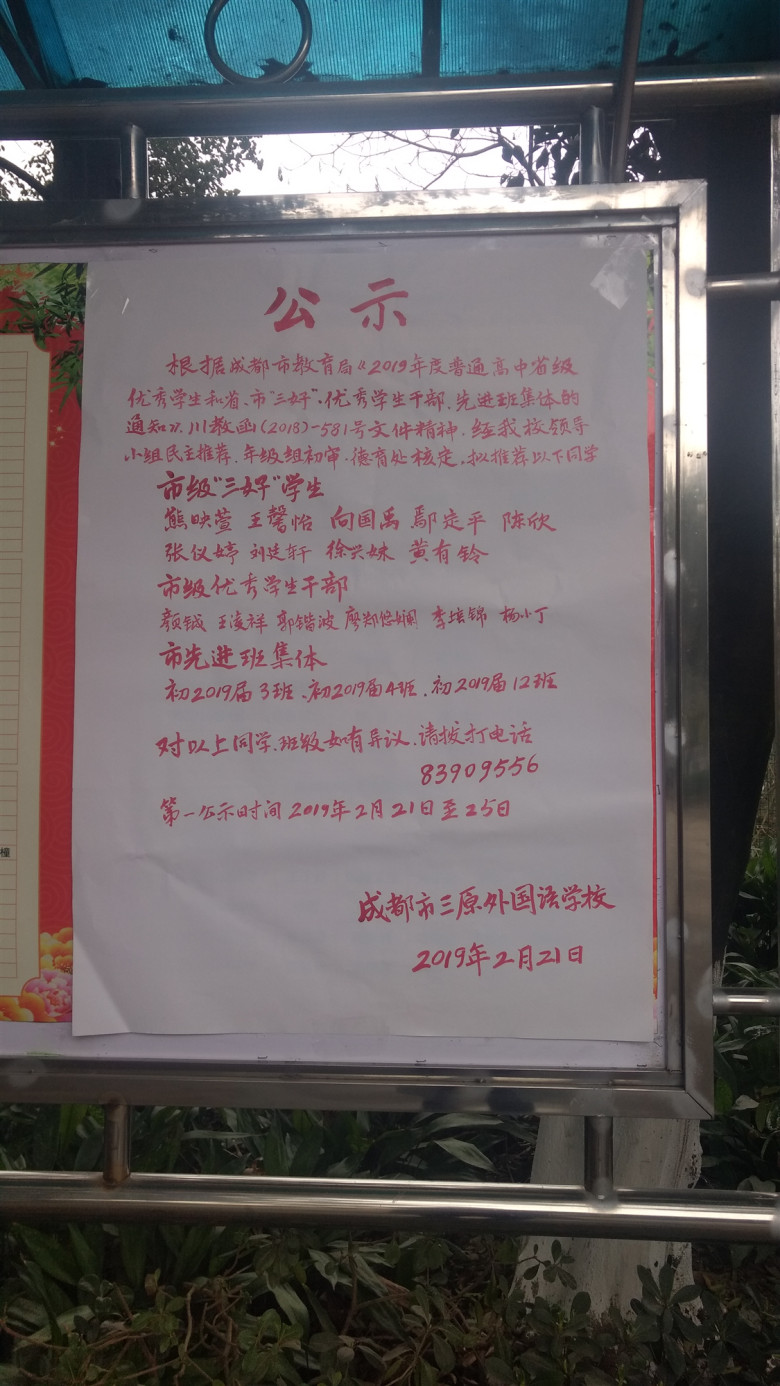 公示
根据成都市教育局《2019年度普通高中省级
优秀学生和省、市"三好"、优秀学生干部、先进班集体的
通知》.川教函(2018)-581号文件精神.经我校领导
小组民主推荐.年级组初审.德育处核定.拟推荐以下同学
市级"三好"学生
熊映萱 王馨怡 向国禹 鄢定平 陈欣
张仪婷 刘廷轩 徐兴妹 黄有铃
市级优秀学生干部
颜钺 王凌祥 郭锴波 廖郑悠娴 李培锦 杨小丁
市先进班集体
初2019届3班、初2019届4班、初2019届12班
对以上同学、班级如有异议、请拨打电话
83909556
第一公示时间 2019年2月21日至25日
成都市三原外国语学校
2019年2月21日
橦